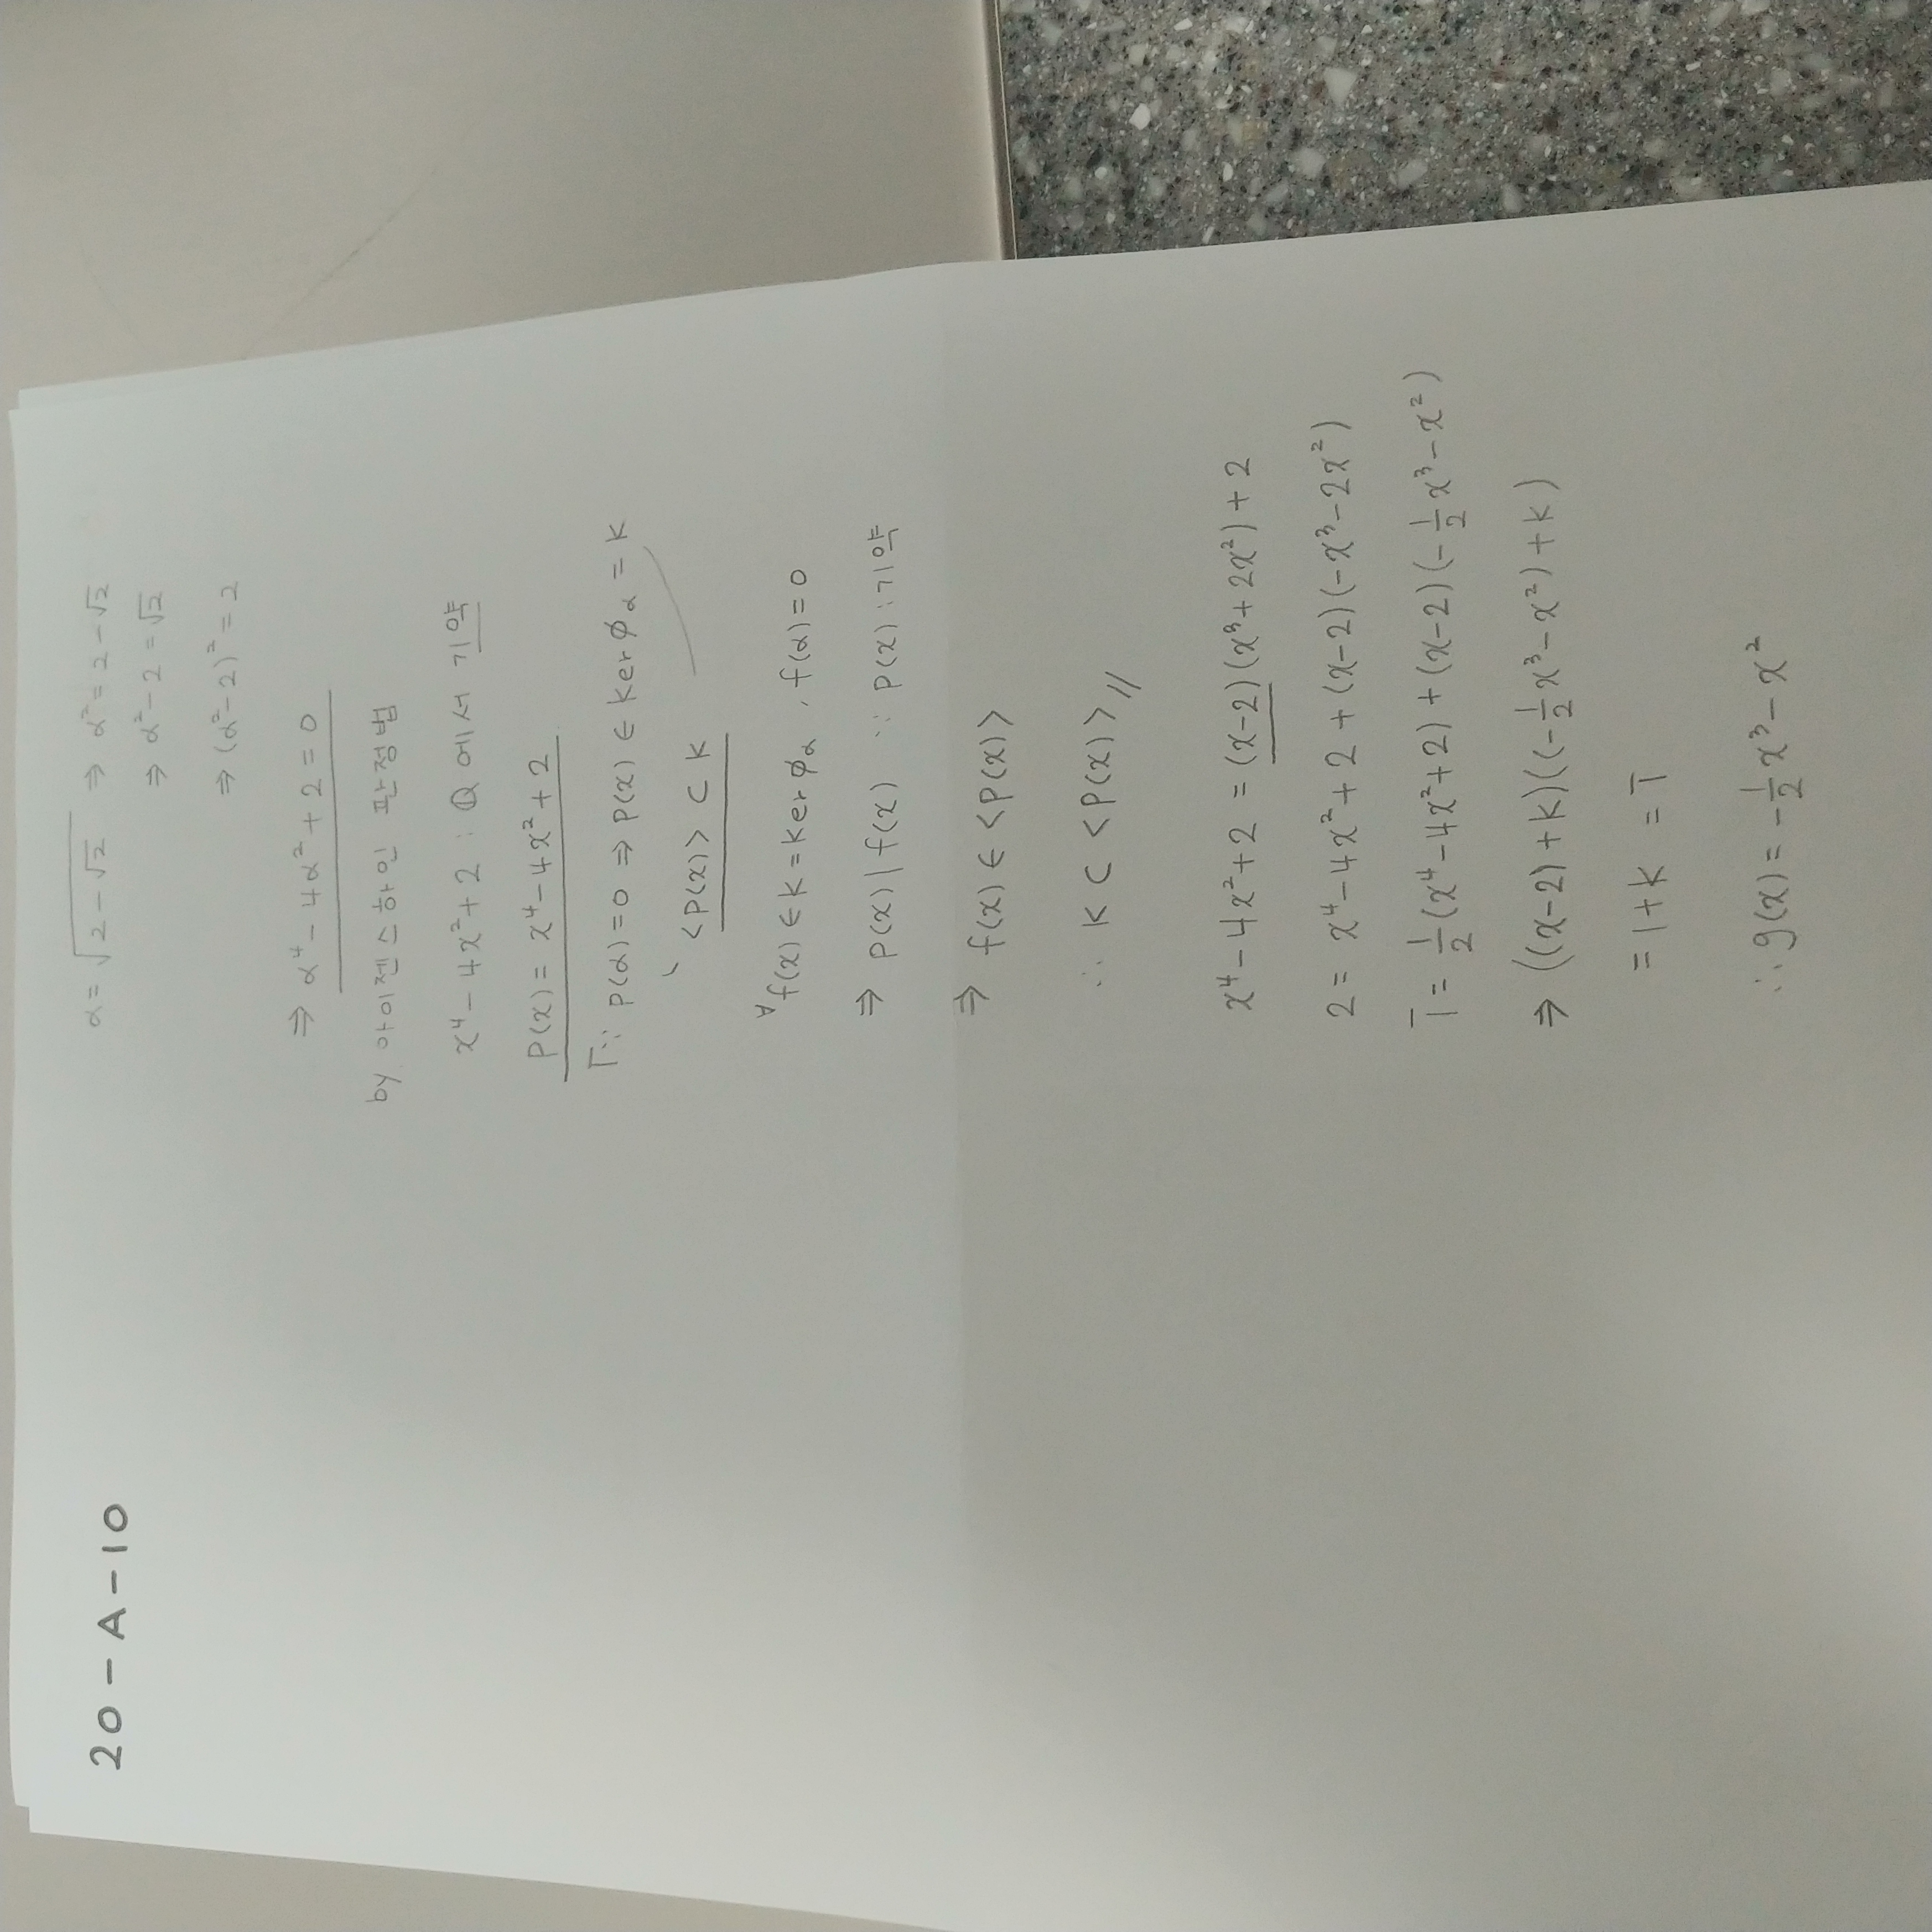 20 - A - 10
α = √(2 - √2) ⇒ α² = 2 - √2
⇒ α² - 2 = √2
⇒ (α² - 2)² = 2
⇒ α⁴ - 4α² + 2 = 0
by 아이젠스하인 판정법
x⁴ - 4x² + 2 : Q 에서 기약
P(x) = x⁴ - 4x² + 2
∵ P(α) = 0 ⇒ P(x) ∈ Ker ϕ_α = K
<P(x)> ⊂ K
∀f(x) ∈ K = Ker ϕ_α , f(α) = 0
⇒ P(x) | f(x) ∵ P(x) : 기약
⇒ f(x) ∈ <P(x)>
∴ K ⊂ <P(x)> //
x⁴ - 4x² + 2 = (x-2)(x³ + 2x²) + 2
2 = x⁴ - 4x² + 2 + (x-2)(-x³ - 2x²)
1̄ = ½(x⁴ - 4x² + 2) + (x-2)(-½x³ - x²)
⇒ ((x-2) + K)((-½x³ - x²) + K)
= 1 + K = 1̄
∴ g(x) = -½x³ - x²